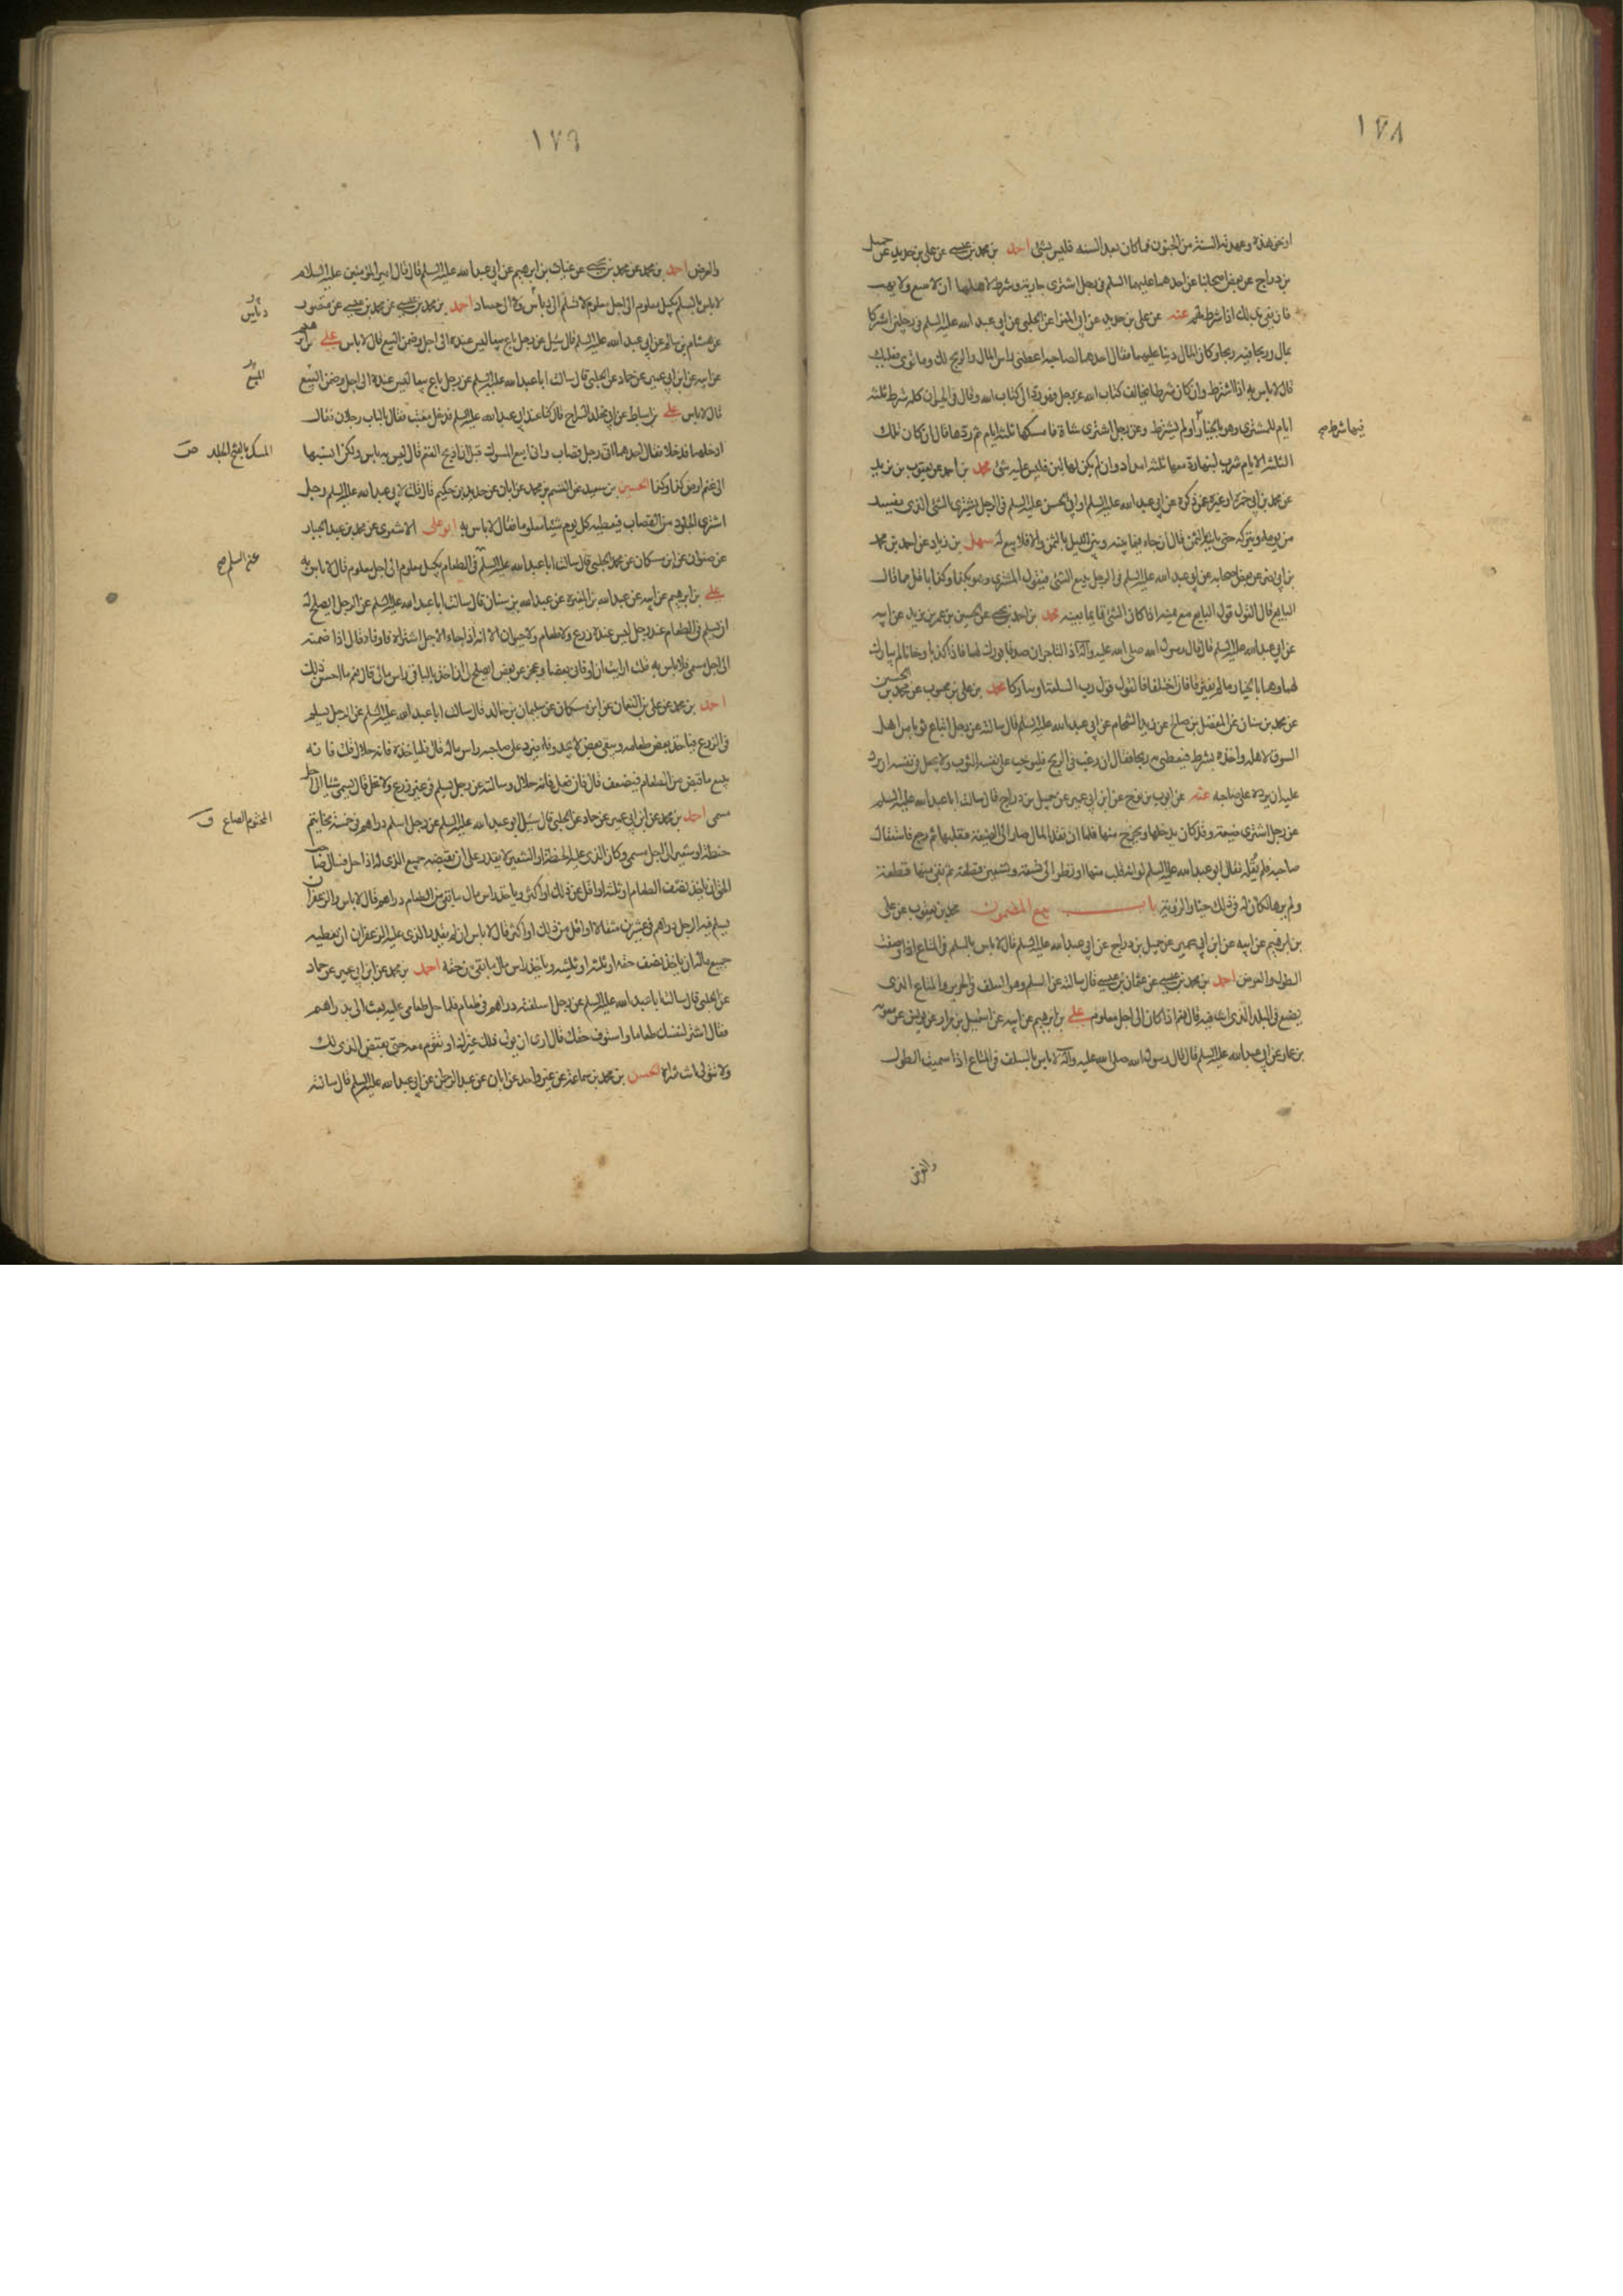 ١٧٨
او نحو هذه وعهدته السنة من الجنون فما كان بعد السنه فليس بشئ احمد بن محمد بن عيسى عن على بن حديد عن جميل
بن دراج عن بعض اصحابنا عن احدهما عليهما السلم فى رجل اشترى جارية وشرط لاهلها ان لا يبيع ولا يهب
قال يفى بذلك اذا شرط لهم عنه عن على بن حديد عن ابى المغرا عن الحلبى عن ابى عبد الله عليه السلم فى رجلين اشتركا
بمال وربحا فيه ربحا وكان المال دينا عليهما فقال احدهما لصاحبه اعطنى راس المال والربح لك وما توى فعليك
قال لا باس به اذا اشترط وان كان شرطا يخالف كتاب الله عز وجل فهو رد الى كتاب الله وقال فى الحيوان كله شرط ثلثه
ايام للمشترى وهو بالخيار اولم يشترط وعن رجل اشترى شاة فامسكها ثلثه ايام ثم ردها قال ان كان تلك
فيها شرط صح
الثلثة الايام شرب لبنها رد معها ثلثه امداد وان لم يكن لها لبن فليس عليه شئ محمد بن احمد عن يعقوب بن يزيد
عن محمد بن ابى حمزة او غيره عمن ذكره عن ابى عبد الله عليه السلم او ابى الحسن عليه السلم فى الرجل يشترى الشئ الذى يفسد
من يومه ويتركه حتى ياتيه بالثمن قال ان جاء فيما بينه وبين الليل بالثمن والا فلا بيع له سهل بن زياد عن احمد بن محمد
بن ابى نصر عن بعض اصحابه عن ابى عبد الله عليه السلم فى الرجل يبيع الشئ فيقول المشترى وهو بكذا وكذا باقل ما قال
البايع قال القول قول البايع مع يمينه اذا كان الشئ قائما بعينه محمد بن احمد بن يحيى عن الحسين بن عمر بن يزيد عن ابيه
عن ابى عبد الله عليه السلم قال قال رسول الله صلى الله عليه وآله اذا التاجران صدقا بورك لهما فاذا كذبا وخانا لم يبارك
لهما وهما بالخيار ما لم يفترقا فان اختلفا فالقول قول رب السلعة او يتاركا محمد بن على بن محبوب عن محمد بن الحسين
عن محمد بن سنان عن المفضل بن صالح عن زيد الشحام عن ابى عبد الله عليه السلم قال سالته عن رجل ابتاع ثوبا من اهل
السوق لاهله واخذه بشرط فيعطى به ربحا فقال ان رغب فى الربح فليوجب على نفسه الثوب ولا يجعل فى نفسه ان يرد
عليه ان يرده على صاحبه عنه عن ايوب بن نوح عن ابن ابى عمير عن جميل بن دراج قال سالت ابا عبد الله عليه السلم
عن رجل اشترى ضيعة وقد كان يدخلها ويخرج منها فلما ان نقد المال صار الى الضيعة فقلبها ثم رجع فاستقال
صاحبه فلم يقله فقال ابو عبد الله عليه السلم لو انه قلب منها او نظر الى تسعة وتسعين قطعة ثم بقى منها قطعة
ولم يرها لكان له فى ذلك خيار الرؤية باب بيع المضمون محمد بن يعقوب عن على
بن ابرهيم عن ابيه عن ابن ابى عمير عن جميل بن دراج عن ابى عبد الله عليه السلم قال لا باس بالسلم فى المتاع اذا وصفت
الطول والعرض احمد بن محمد بن عيسى عن عثمان بن عيسى قال سالته عن السلم وهو السلف فى الحرير والمتاع الذى
يصنع فى البلد الذى انت فيه قال نعم اذا كان الى اجل معلوم على بن ابرهيم عن ابيه عن اسمعيل بن مرار عن يونس عن معوية
بن عمار عن ابى عبد الله عليه السلم قال قال رسول الله صلى الله عليه وآله لا باس بالسلف فى المتاع اذا سميت الطول
والعرض
١٧٩
والعرض احمد بن محمد عن محمد بن يحيى عن غياث بن ابرهيم عن ابى عبد الله عليه السلم قال قال امير المؤمنين عليه السلام
لا باس بالسلم بكيل معلوم الى اجل معلوم لا تسلم الى دياس ولا الى حصاد احمد بن محمد بن عيسى عن محمد بن عيسى عن منصور
دياس
عن هشام بن سالم عن ابى عبد الله عليه السلم قال سئل عن رجل باع بيعا ليس عنده الى اجل وضمن البيع قال لا باس على
عن ابيه عن ابن ابى عمير عن حماد عن الحلبى قال سالت ابا عبد الله عليه السلم عن رجل باع بيعا ليس عنده الى اجل وضمن البيع
البيع
قال لا باس على بن اسباط عن ابى مخلد السراج قال كنا عند ابى عبد الله عليه السلم فدخل معتب فقال بالباب رجلان فقال
ادخلهما فدخلا فقال احدهما انى رجل قصاب وانى ابيع المسوك قبل ان اذبح الغنم قال ليس به باس ولكن انسبها
المسك بالفتح الجلد ص
الى غنم ارض كذا وكذا الحسين بن سعيد عن القسم بن محمد عن ابان عن حديد بن حكيم قال قلت لابى عبد الله عليه السلم رجل
اشترى الجلود من القصاب فيعطيه كل يوم شيئا معلوما فقال لا باس به ابو على الاشعرى عن محمد بن عبد الجبار
عن صفوان عن ابن مسكان عن محمد الحلبى قال سالت ابا عبد الله عليه السلم فى الطعام بكيل معلوم الى اجل معلوم قال لا باس به
عن السلم صح
على بن ابرهيم عن ابيه عن عبد الله بن المغيرة عن عبد الله بن سنان قال سالت ابا عبد الله عليه السلم عن الرجل ايصلح له
ان يسلم فى الطعام عند رجل ليس عنده زرع ولا طعام ولا حيوان الا انه اذا جاء الاجل اشتراه فاوفاه قال اذا ضمنه
الى اجل مسمى فلا باس به قلت ارايت ان اوفانى بعضا وعجز عن بعض ايصلح ان اخذ بالباقى راس مالى قال نعم ما احسن ذلك
احمد بن محمد عن على بن النعمان عن ابن مسكان عن سليمان بن خالد قال سالت ابا عبد الله عليه السلم عن الرجل يسلم
فى الزرع فياخذ بعض طعامه ويبقى بعض لا يجد وفاء فيرد على صاحبه راس ماله قال فلياخذه فانه حلال قلت فانه
يبيع ما قبض من الطعام فيضعف قال فان فعل فانه حلال وسالته عن رجل يسلم فى غير زرع ولا نخل قال يسمى شيئا الى اجل
مسمى احمد بن محمد عن ابن ابى عمير عن حماد عن الحلبى قال سئل ابو عبد الله عليه السلم عن رجل اسلم دراهم فى خمسة مخاتيم
المختوم الصاع ق
حنطة او شعير الى اجل مسمى وكان الذى عليه الحنطة او الشعير لا يقدر على ان يقبضه جميع الذى له اذا حل فسال صاحب
الحق ان ياخذ نصف الطعام او ثلثه او اقل من ذلك او اكثر وياخذ راس مال ما بقى من الطعام دراهم قال لا باس والزعفران
يسلم فيه الرجل دراهم فى عشرين مثقالا او اقل من ذلك او اكثر قال لا باس ان لم يقدر الذى عليه الزعفران ان يعطيه
جميع ماله ان ياخذ نصف حقه او ثلثه او ثلثيه وياخذ راس مال ما بقى من حقه احمد بن محمد عن ابن ابى عمير عن حماد
عن الحلبى قال سالت ابا عبد الله عليه السلم عن رجل اسلفته دراهم فى طعام فلما حل طعامى عليه بعث الى بدراهم
فقال اشتر لنفسك طعاما واستوف حقك قال ارى ان يولى ذلك غيرك او تقوم معه حتى يقبض الذى لك
ولا تتولى انت شراه الحسن بن محمد بن سماعة عن غير واحد عن ابان عن عبد الرحمن عن ابى عبد الله عليه السلم قال سالته